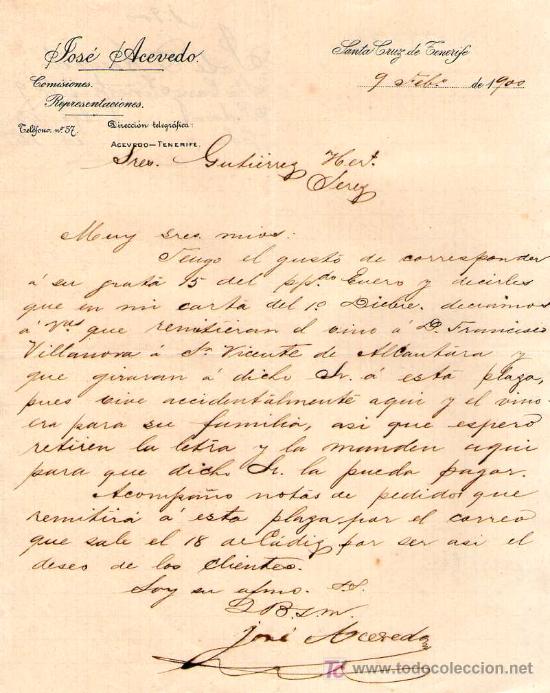 José Acevedo.
Comisiones.
Representaciones.
Teléfono, nº 57.
Dirección telegráfica:
ACEVEDO—TENERIFE.
Santa Cruz de Tenerife
9 Febº de 1900
Sres. Gutiérrez Herº.
Jerez
Muy sres. mios:
Tengo el gusto de corresponder
á su grata 15 del pp.do Enero y decirles
que en mi carta del 1º Dicbre. deciamos
á Vdes que remitieran el vino á D. Francisco
Villanova á Sn. Vicente de Alcantára y
que giraran á dicho Sr. á esta plaza,
pues vive accidentalmente aqui y el vino
era para su familia, asi que espero
retiren la letra y la manden aqui
para que dicho Sr. la pueda pagar.
Acompaño notas de pedido que
remitirá á esta plaza por el correo
que sale el 18 de Cádiz por ser asi el
deseo de los clientes.
Soy su afmo. S.S.
Q B. s. m.
José Acevedo
TC www.todocoleccion.net